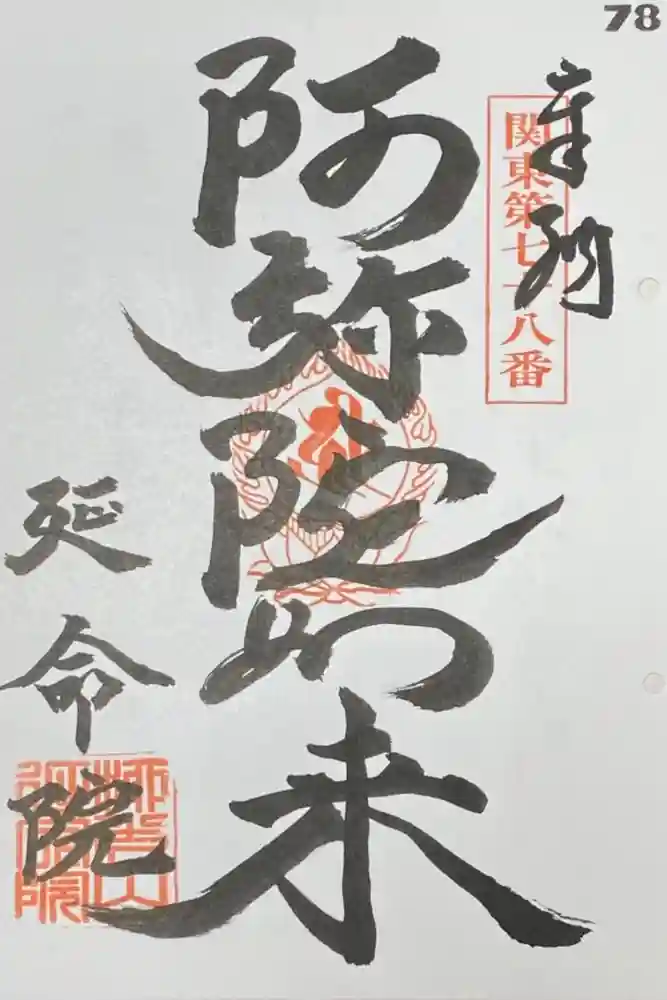 78
奉納
関東第七十八番
阿弥陀如来
延命院